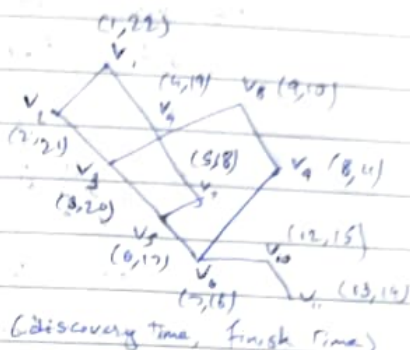 (1,22)
V1
(4,19)
V8 (9,10)
V2
(2,21)
V4
(5,8)
V9 (8,11)
V3
(3,20)
V7
V5
(6,17)
(12,15)
V10
V6
(7,16)
V11 (13,14)
(discovery time, finish time)